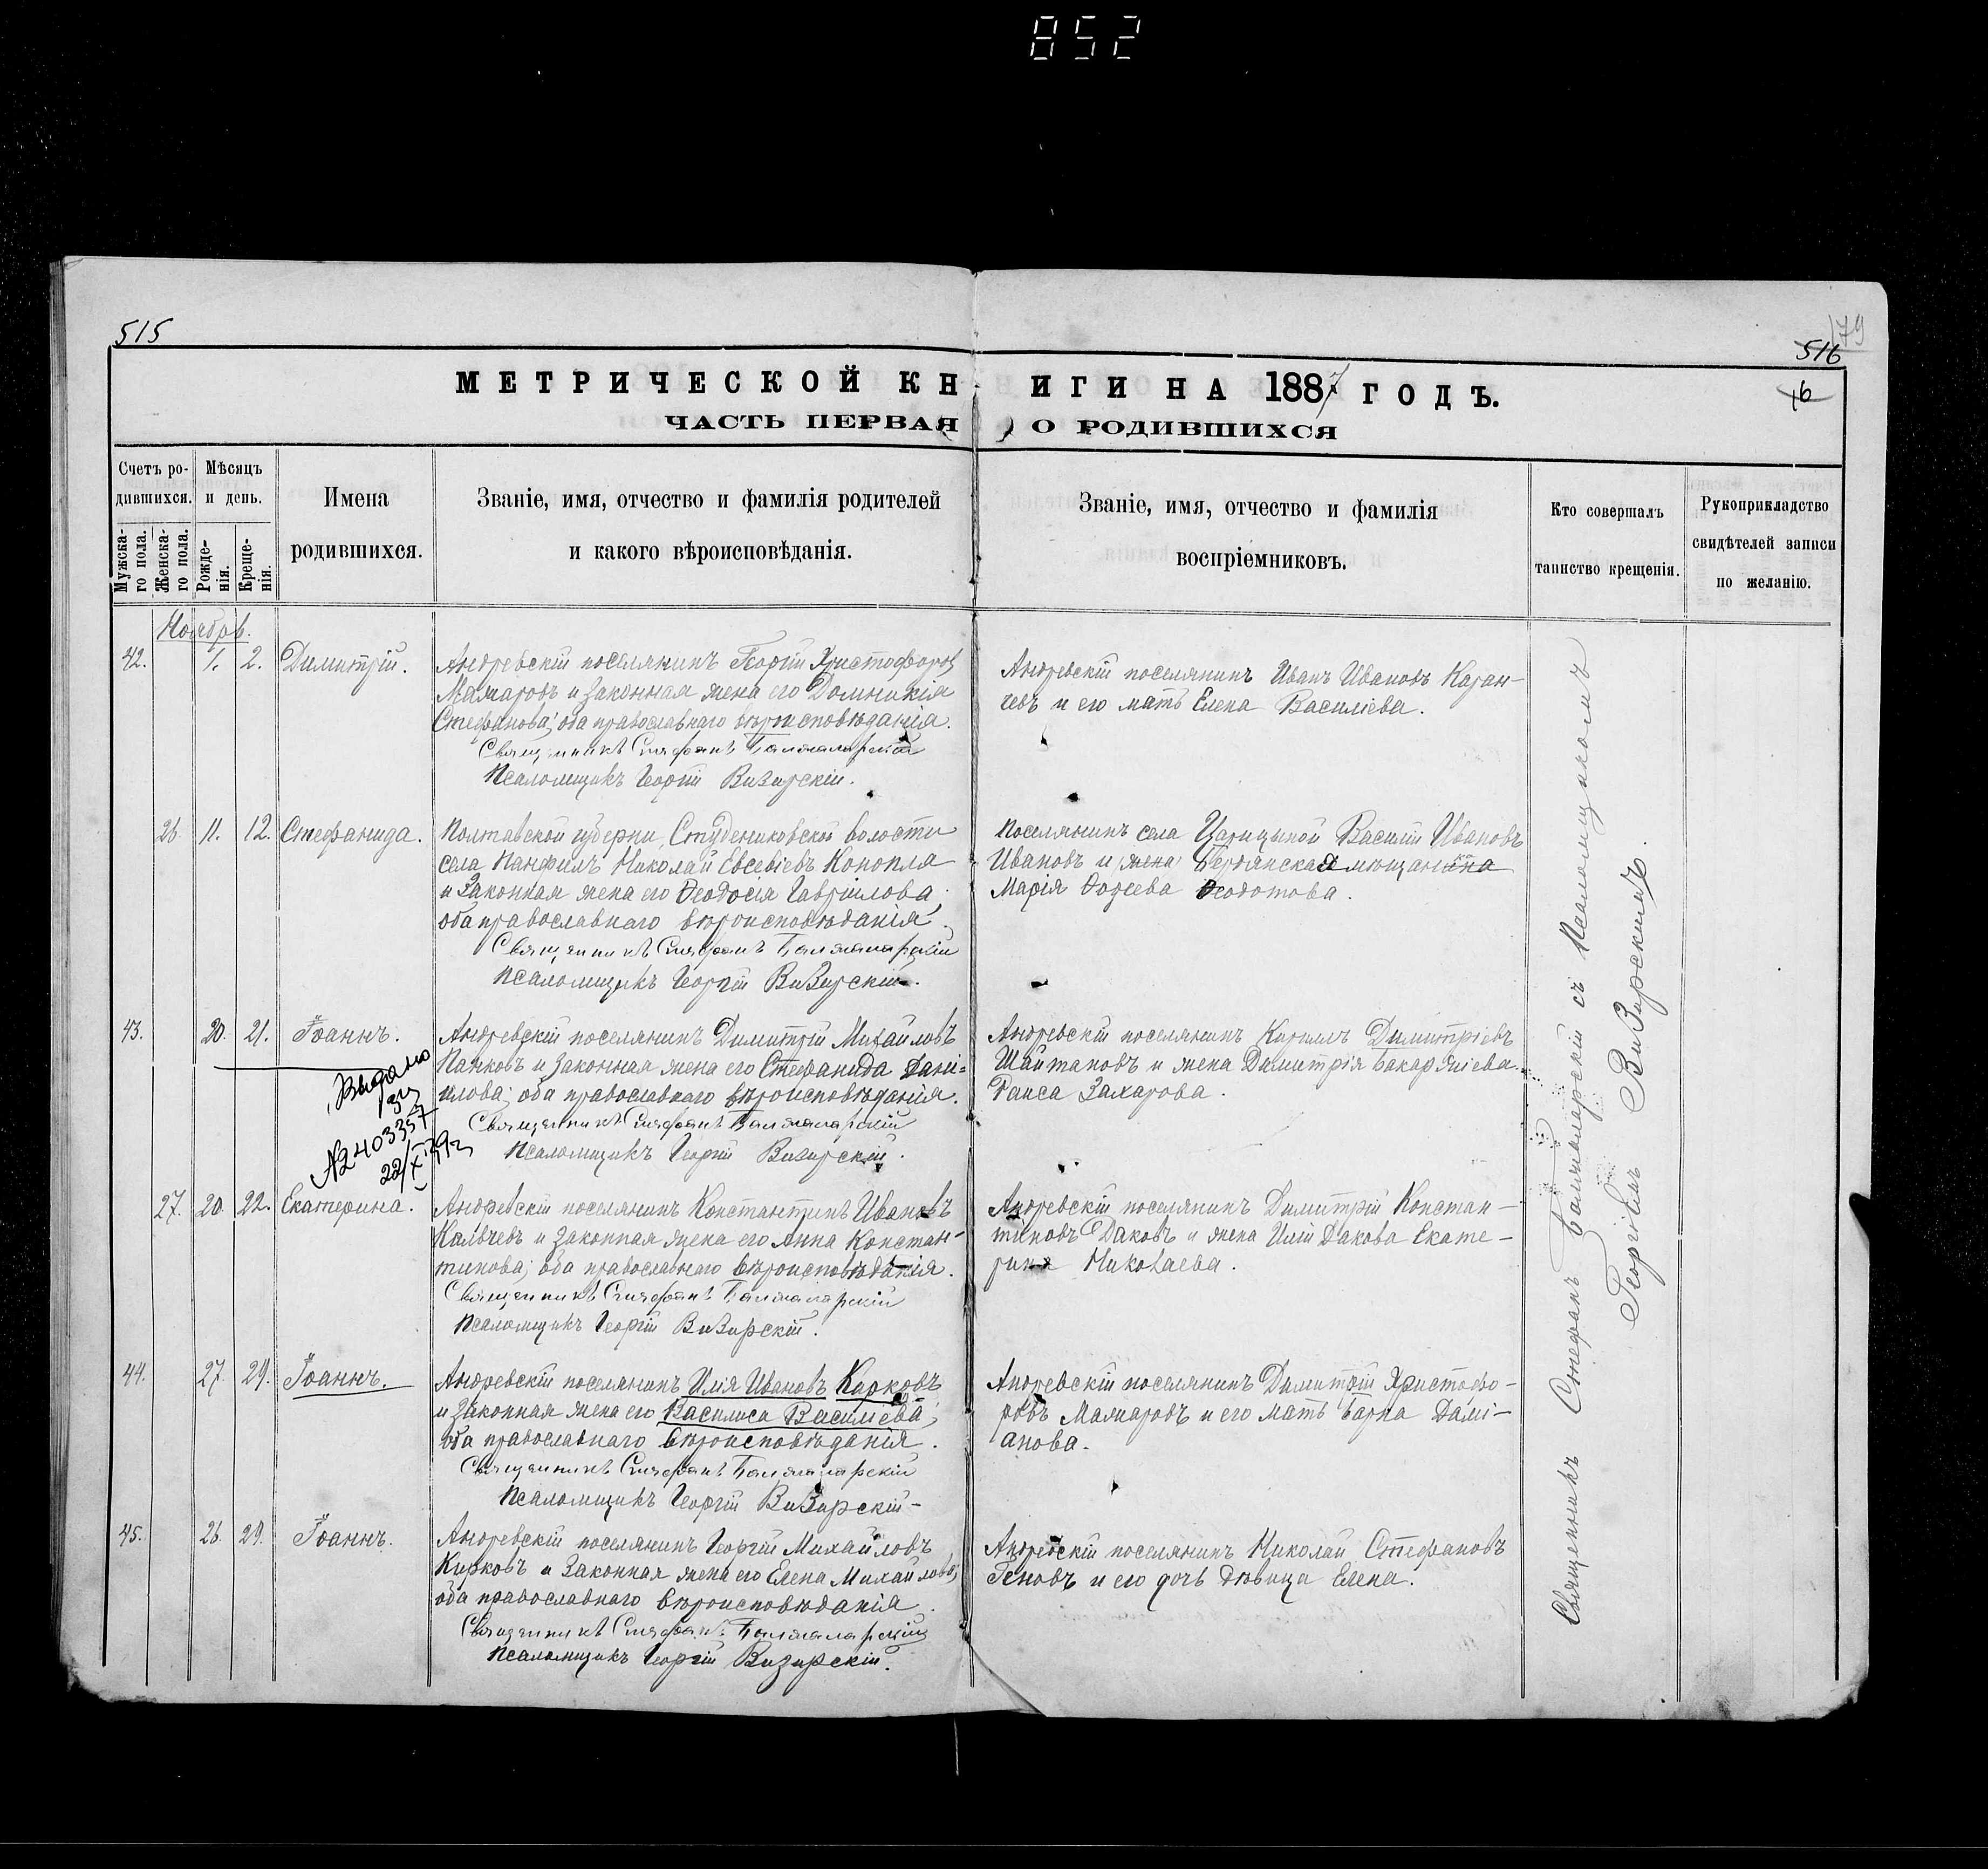 852
515
516
179
16
МЕТРИЧЕСКОЙ КНИГИ НА 1887 ГОДЪ.
ЧАСТЬ ПЕРВАЯ О РОДИВШИХСЯ
Счетъ ро-
дившихся.
Мужска-
го пола.
Женска-
го пола.
Мѣсяцъ
и день.
Рожде-
нія.
Креще-
нія.
Имена
родившихся.
Званіе, имя, отчество и фамилія родителей
и какого вѣроисповѣданія.
Званіе, имя, отчество и фамилія
воспріемниковъ.
Кто совершалъ
таинство крещенія.
Рукоприкладство
свидѣтелей записи
по желанію.
Ноябрь.
42. 1. 2. Димитрій.
Андревскій поселянинъ Георгій Христофоровъ
Мамаровъ и законная жена его Домникія
Стефанова; оба православнаго вѣроисповѣданія.
Священникъ Стефанъ
Псаломщикъ Георгій Визирскій.
Андревскій поселянинъ Иванъ Ивановъ Каран-
чевъ и его мать Елена Василіева.
26. 11. 12. Стефанида.
Полтавской губерни, Студениковской волости
села Панфилъ Николай Евсевіевъ Конопля
и законная жена его Ѳеодосія Гавріилова
оба православнаго вѣроисповѣданія.
Священникъ Стефанъ
Псаломщикъ Георгій Визирскій.
Поселянинъ села Царицыной Василій Ивановъ
Ивановъ и жена Бердянская мѣщанка
Марія Ѳеодотова.
43. 20. 21. Іоаннъ.
Андревскій поселянинъ Димитрій Михайловъ
Панковъ и законная жена его Стефанида Дані-
илова; оба православнаго вѣроисповѣданія.
Священникъ Стефанъ
Псаломщикъ Георгій Визирскій.
Андревскій поселянинъ Кириллъ Димитріевъ
Шайтановъ и жена Димитрія
Раиса Захарова.
Выдано
№2403357
22/X
27. 20. 22. Екатерина.
Андревскій поселянинъ Константинъ Ивановъ
Кальчевъ и законная жена его Анна Констан-
тинова; оба православнаго вѣроисповѣданія.
Священникъ Стефанъ
Псаломщикъ Георгій Визирскій.
Андревскій поселянинъ Димитрій Констан-
тиновъ Даковъ и жена Иліи Дакова Екате-
рина Николаева.
44. 27. 29. Іоаннъ.
Андревскій поселянинъ Илія Ивановъ Кирковъ
и законная жена его Василиса Василіева,
оба православнаго вѣроисповѣданія.
Священникъ Стефанъ
Псаломщикъ Георгій Визирскій-
Андревскій поселянинъ Димитрій Христофо-
ровъ Мамаровъ и его мать Дамі-
анова.
45. 26. 29. Іоаннъ.
Андревскій поселянинъ Георгій Михайловъ
Кирковъ и законная жена его Елена Михайлова,
оба православнаго вѣроисповѣданія.
Священникъ Стефанъ
Псаломщикъ Георгій Визирскій.
Андревскій поселянинъ Николай Стефановъ
Геновъ и его дочь дѣвица Елена.
Священникъ Стефанъ съ Псаломщикомъ
Георгіемъ Визирскимъ.